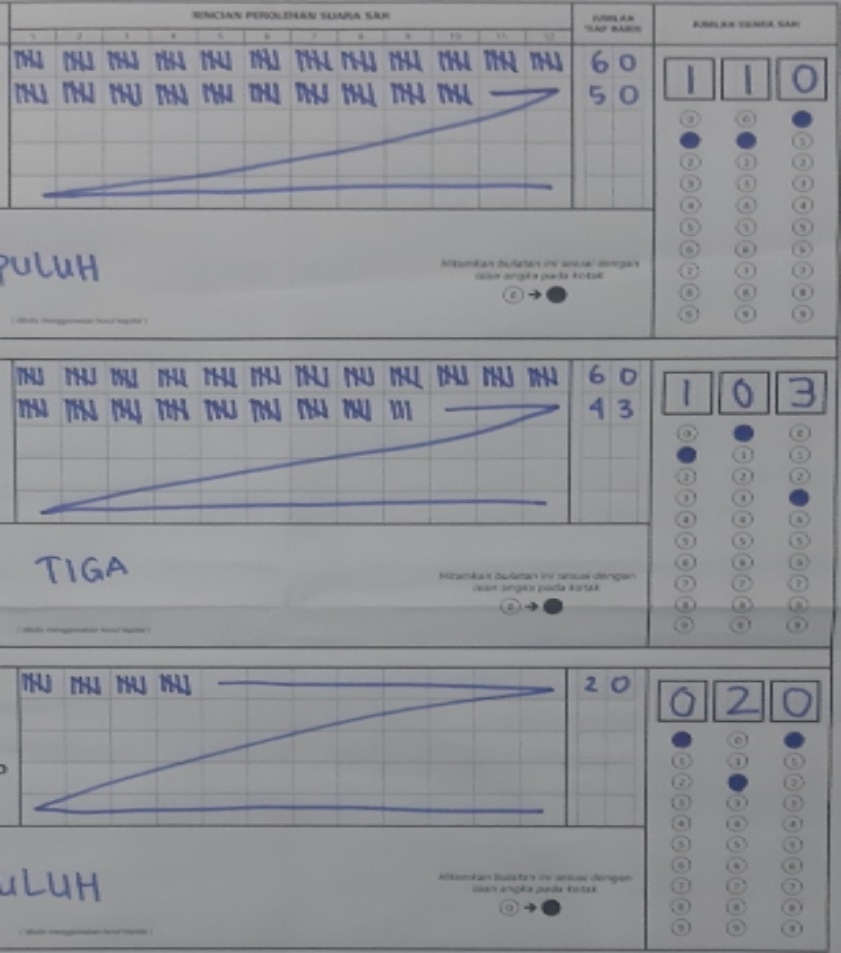 RINCIAN PEROLEHAN SUARA SAH
JUMLAH TIAP BARIS
JUMLAH SUARA SAH
1 2 3 4 5 6 7 8 9 10 11 12
60
50
110
PULUH
Hitamkan bulatan ini sesuai dengan
isian angka pada kotak
(ditulis menggunakan huruf kapital)
60
43
103
TIGA
Hitamkan bulatan ini sesuai dengan
isian angka pada kotak
(ditulis menggunakan huruf kapital)
20
020
ULUH
Hitamkan bulatan ini sesuai dengan
isian angka pada kotak
(ditulis menggunakan huruf kapital)